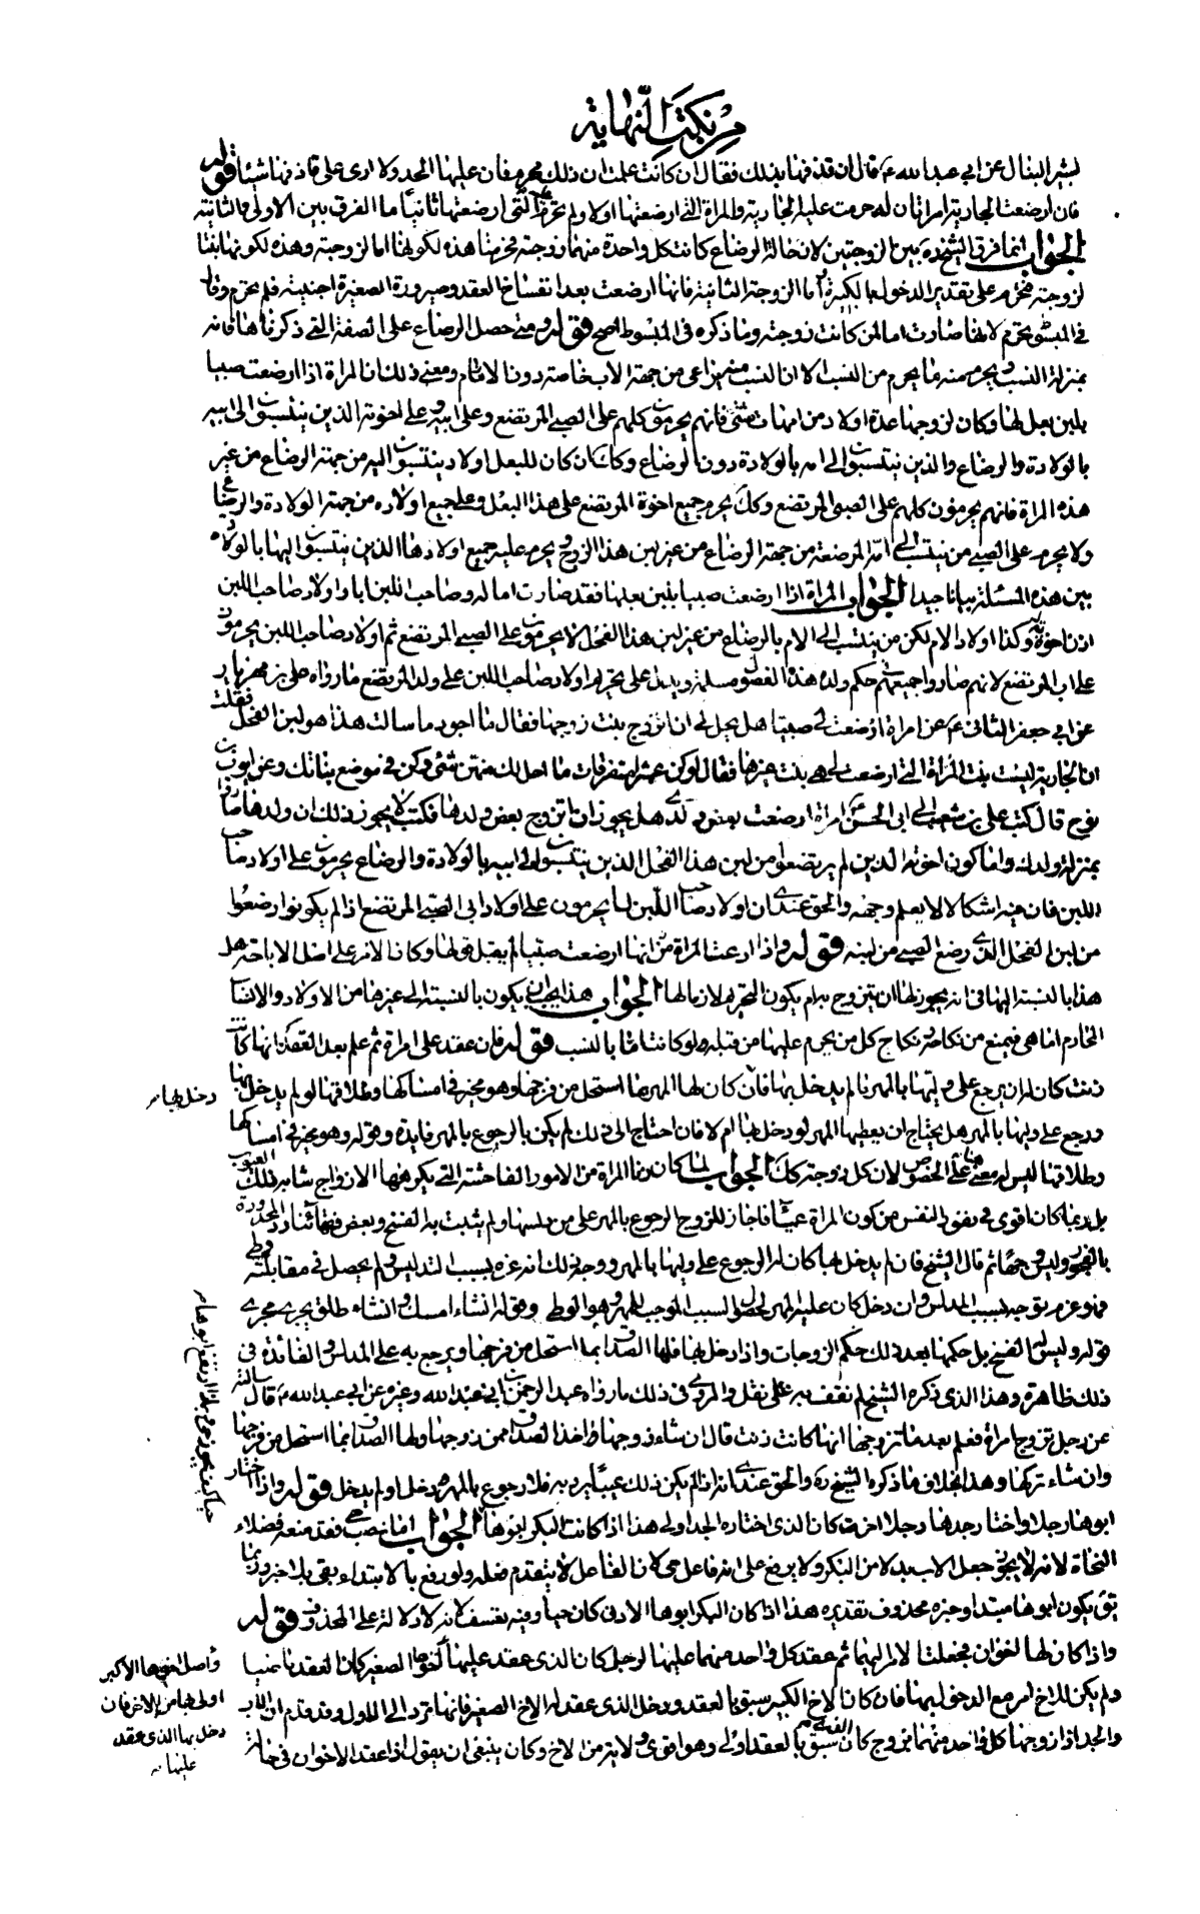 من نكت النهاية
لبشير النبال عن ابي عبد الله ع قال ان قذفها بذلك فقال ان كانت علمت ان ذلك محرم فان عليها الحد ولا ارى على قاذفها شيئا قوله
فان ارضعت الجارية امراتان له حرمت عليه الجارية والمراة التي ارضعتها اولا ولم تحرم عليه التي ارضعتها ثانيا ما الفرق بين الاولى والثانية
الجواب انما فرق الشيخ ره بين الزوجتين لان حالة الرضاع كانت كل واحدة منهما زوجته فحرمتا هذه لكونها اما لزوجته وهذه لكونها بنتا
لزوجته فتحرم على تقدير الدخول بالكبيرة واما الزوجة الثانية فانها ارضعت بعد انفساخ العقد وصيرورة الصغيرة اجنبية فلم تحرم وقال
في المبسوط تحرم لانها صارت اما لمن كانت زوجته وما ذكره في المبسوط اصح قوله ومتى حصل الرضاع على الصفة التي ذكرناها فانه
بمنزلة النسب ويحرم منه ما يحرم من النسب الا ان النسب منه يراعى من جهة الاب خاصة دون الام ومعنى ذلك ان المراة اذا ارضعت صبيا
بلبن بعل لها وكان لزوجها عدة اولاد من امهات شتى فانهم يحرمون كلهم على الصبي المرتضع وعلى ابيه وعلى اخوته الذين ينتسبون الى ابيه
بالولادة والرضاع والذين ينتسبون الى امه بالولادة دون الرضاع وكذا ان كان للبعل اولاد ينتسبون اليه من جهة الرضاع من غير
هذه المراة فانهم يحرمون كلهم على الصبي المرتضع وكك يحرم جميع اخوة المرتضع على هذا البعل وعلى جميع اولاده من جهة الولادة والرضاع
ولا يحرم على الصبي من ينتسب الى امه المرضعة من جهة الرضاع من غير لبن هذا الزوج ويحرم عليه جميع اولادها الذين ينتسبون اليها بالولادة
بين هذه المسئلة بيانا جيدا الجواب المراة اذا ارضعت صبيا بلبن بعلها فقد صارت اما له وصاحب اللبن ابا واولاد صاحب اللبن
اذن اخوته وكذا اولاد الام لكن من ينتسب الى الام بالرضاع من غير لبن هذا الفحل لا يحرمون على الصبي المرتضع ثم اولاد صاحب اللبن يحرمون
على اب المرتضع لانهم صاروا جميعهم حكم ولده هذا الفصل مسلم ويدل على تحريم اولاد صاحب اللبن على ولد المرتضع ما رواه علي بن مهزيار
عن ابي جعفر الثاني ع عن امراة ارضعت لي صبيا هل يحل لي ان اتزوج بنت زوجها فقال ما اجود ما سالت هذا هو لبن الفحل فقلت
ان الجارية ليست بنت المراة التي ارضعت لي هي بنت غيرها فقال لو كن عشرا متفرقات ما احل لك منهن شئ وكن في موضع بناتك وعن ايوب بن
نوح قال كتب علي بن شعيب الى ابي الحسن ع امراة ارضعت بعض ولدي هل يجوز ان اتزوج بعض ولدها فكتب لا يجوز ذلك ان ولدها صار
بمنزلة ولدك واما كون اخوته الذين لم يرتضعوا من لبن هذا الفحل الذين ينتسبون الى ابيه بالولادة والرضاع يحرمون على اولاد صاحب
اللبن فان فيه اشكالا لا يعلم وجهه والحق عندي ان اولاد صاحب اللبن لا يحرمون على اولاد ابي الصبي المرتضع اذا لم يكونوا ارضعوا
من لبن الفحل الذي رضع الصبي من لبنه قوله واذا ادعت المراة انها ارضعت صبيا لم يقبل قولها وكان الامر على اصل الاباحة هل
هذا بالنسبة اليها في انه يجوز لها ان تتزوج به ام يكون التحريم لازما لها الجواب هذا يجب ان يكون بالنسبة الى غيرها من الاولاد والانساب
المحارم اما هي فيمنع من نكاحه ونكاح كل من يحرم عليها من قبله ولو كانت اما بالنسب قوله فان عقد على امراة ثم علم بعد العقد انها كانت
زنت كان له ان يرجع على وليها بالمهر فما لم يدخل بها فان كان لها المهر بما استحل من فرجها وهو مخير في امساكها وطلاقها لو لم يدخل بها
ورجع على وليها بالمهر هل يحتاج ان يعطيها المهر لو دخل بها ام لا فان احتاج الى ذلك لم يكن بالرجوع بالمهر فايدة وقوله وهو مخير في امساكها
وطلاقها ليس له معنى هنا على الخصوص لان كل زوجته كك الجواب لما كان زنا المراة من الامور الفاحشة التي يكرهها الازواج شابه ذلك العيوب
بل ربما كان اقوى في نفور النفس من كون المراة عيبا فاجاز للزوج الرجوع بالمهر على من دلسها ولم يثبت به الفسخ وبعض فقهائنا رد المحدودة
بالفجور وليس وجها ثم قال الشيخ فان لم يدخل بها كان له الرجوع على وليها بالمهر ووجه ذلك انه غره بسبب التدليس ولم يحصل في مقابلته وطي
فهو غرم توجه بسبب المدلس وان دخل كان عليه المهر لحصول السبب الموجب للمهر وهو الوطي وقوله ان شاء امسك وان شاء طلق يجري مجرى
قوله وليس له الفسخ بل حكمها بعد ذلك حكم الزوجات واذا دخل بها فلها الصداق بما استحل من فرجها ويرجع به على المدلس والفائدة في
ذلك ظاهرة وهذا الذي ذكره الشيخ لم نقف به على نقل والمروي في ذلك ما رواه عبد الرحمن بن ابي عبد الله وغيره عن ابي عبد الله ع قال سالته
عن رجل تزوج امراة فعلم بعد ما تزوجها انها كانت زنت قال ان شاء زوجها اخذ الصداق ممن زوجها ولها الصداق بما استحل من فرجها
وان شاء تركها وهذا بخلاف ما ذكره الشيخ ره والحق عندي انه اذا لم يكن ذلك عيبا يرد به فلا رجوع بالمهر دخل او لم يدخل قوله واذا اختار
ابوها رجلا واختار جدها رجلا اخر كان الذي اختاره الجد اولى هذا اذا كانت البكر ابوها الجواب اما نصب حي فقد منعه فضلاء
النحاة لانه لا يجوز جعل الاب بدلا من البكر ولا يرفع على انه فاعل حي لان الفاعل لا يتقدم فعله ولو رفع بالابتداء بقي بلا خبر وربما
يق يكون ابوها مبتدا وخبره محذوف تقديره هذا اذا كان البكر ابوها الادنى كان حيا وفيه تعسف لانه لا دلالة على المحذوف قوله
واذا كان لها اخوان فجعلت الامر اليهما ثم عقد كل واحد منهما عليها لرجل كان الذي عقد عليها اخوها الصغير كان العقد ماضيا
ولم يكن للاخ امر مع الدخول بها فان كان الاخ الكبير سبق بالعقد ودخل الذي عقد له الاخ الصغير فانها ترد الى الاول وقد قدم ان الاب
والجد اذا زوجها كل واحد منهما بزوج كان الذي سبق بالعقد اولى وهو اقوى ولاية من الاخ وكان ينبغي ان يقول اذا عقد الاخوان في حالة
دخل بها
حيا كيف يجوز حي بلا ارتفع ابوها
واصل اخوها الاكبر
اولى بها من الاخر فان
دخل بها الذي عقد
عليها